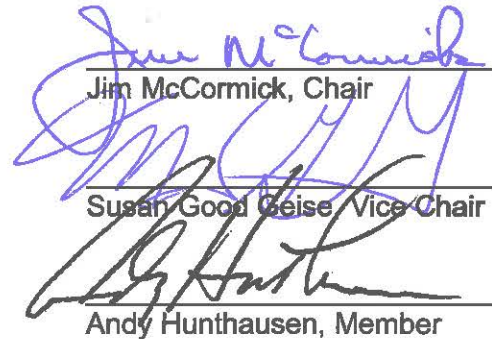 Jim McCormick
Jim McCormick, Chair
Susan Good Geise, Vice Chair
Andy Hunthausen, Member